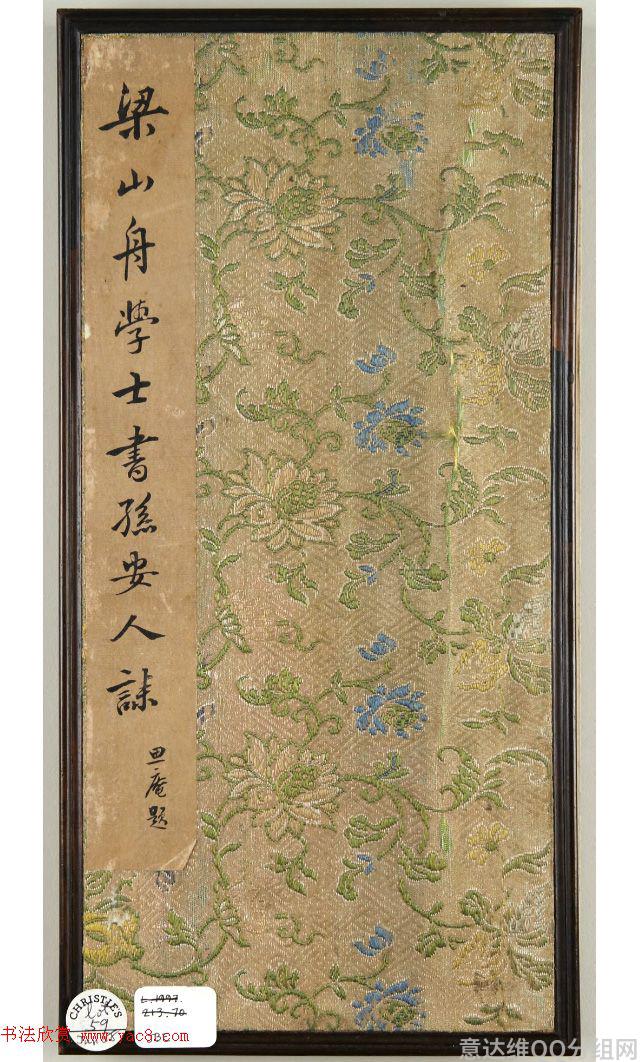 梁山舟學士書孫安人誄
庵題
CHRISTIE'S
Lot
59
L.1997.
213.70
书法欣赏 www.yac8.com
意达维QQ分组网